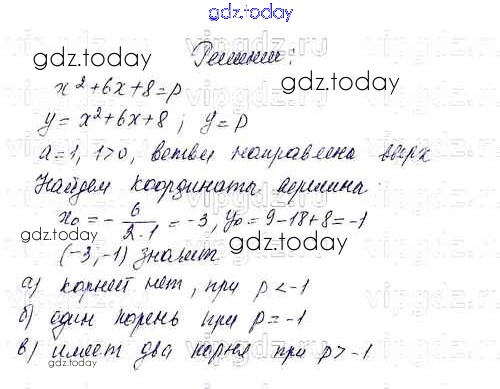 gdz.today
Решение:
gdz.today
gdz.today
x²+6x+8=p
y=x²+6x+8; y=p
a=1, 1>0, ветви направлены вверх
Найдем координаты вершины
x₀=-6/2·1=-3, y₀=9-18+8=-1
gdz.today
gdz.today
(-3;-1) значит
а) корней нет, при p<-1
б) один корень при p=-1
в) имеет два корня при p>-1
gdz.today